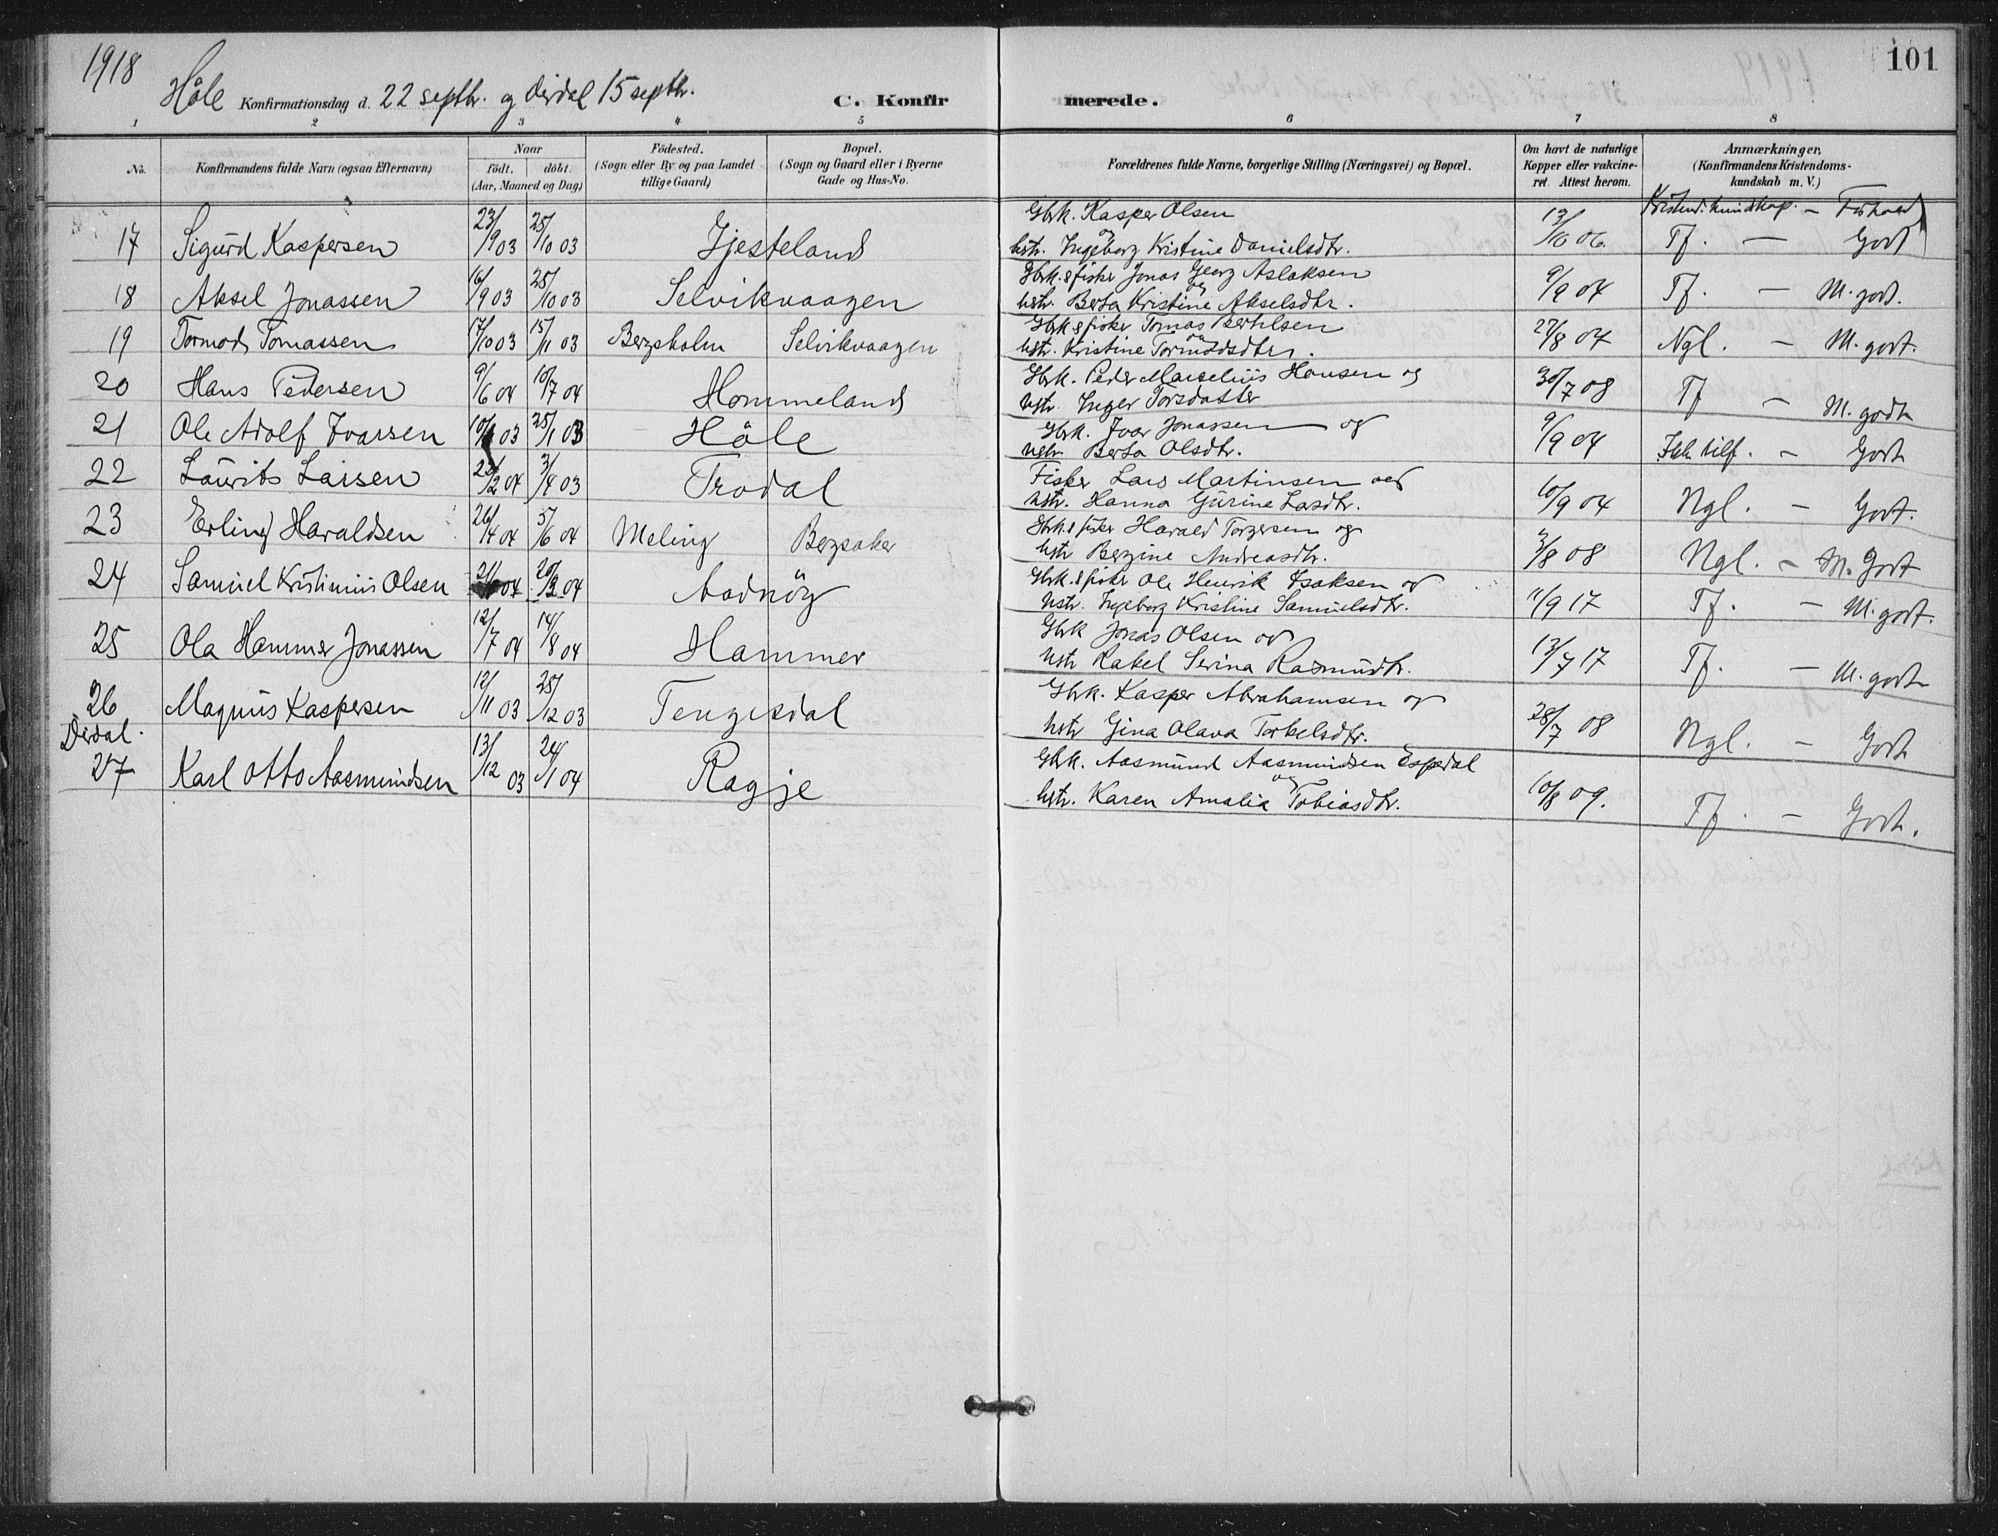 1918
101
Høle Konfirmationsdag d. 22 septbr. og Dirdal 15 septbr.
C. Konfirmerede.
1 2 3 4 5 6 7 8
No. Konfirmandens fulde Navn (ogsaa Efternavn) Naar født. døbt. (Aar, Maaned og Dag) Fødested. (Sogn eller By og paa Landet tillige Gaard) Bopæl. (Sogn og Gaard eller i Byerne Gade og Hus-No. Forældrenes fulde Navne, borgerlige Stilling (Næringsvei) og Bopæl. Om havt de naturlige Kopper eller vakcineret. Attest herom. Anmærkninger. (Konfirmandens Kristendomskundskab m. V.)
Kristend. kundskap. - Forhold
17 Sigurd Kaspersen 23/9 03 25/10 03 Gjesteland Gbk. Kasper Olsen og
hstr. Ingeborg Kristine Danielsdtr. 13/10 06 Tf. — Godt
18 Aksel Jonassen 16/9 03 25/10 03 Selvikvaagen Gbk. & fisker Jonas Georg Aslaksen og
hstr. Berta Kristine Akselsdtr. 9/9 04 Tf. — M. godt.
19 Tormod Tomassen 17/10 03 15/11 03 Bergsholm Selvikvaagen Gbk & fisker Tomas Bertilsen og
hstr. Kristine Tormodsdtr. 27/8 04 Ngl. — M. godt.
20 Hans Pedersen 9/6 04 10/7 04 Hommeland Gbk. Peder Marselius Hansen og
hstr. Inger Torsdatter 30/7 08 Tf — M. godt
21 Ole Adolf Ivarsen 25/1 03 Høle Gbk. Ivar Jonassen og
hstr. Berta Olsdtr. 9/9 04 Ikke tilf. — Godt
22 Laurits Larsen 22/2 04 3/4 03 Trodal Fisker Lars Martinsen og
hstr. Hanna Gurine Lasdtr. 10/9 04 Ngl. — Godt.
23 Erling Haraldsen 26/4 04 5/6 04 Meling Bergsaker Gbk & fisker Harald Torgersen og
hstr Bergine Andreasdtr. 3/8 08 Ngl. — M. Godt
24 Samuel Kristinius Olsen 04 20/3 04 Aadnøy Gbk. & fisker Ole Henrik Isaksen og
hstr. Ingeborg Kristine Samuelsdtr. 11/9 17 Tf. — M. godt.
25 Ola Hammer Jonassen 12/7 04 14/8 04 Hammer Gbk Jonas Olsen og
hstr Rakel Serina Rasmusdtr. 13/7 17 Tf. — M. godt
26 Magnus Kaspersen 12/11 03 25/12 03 Tengesdal Gbk. Kasper Abrahamsen og
hstr Gina Olava Torkelsdtr. 28/7 08 Ngl. — Godt
Dirdal.
27 Karl Otto Aasmundsen 13/12 03 24/1 04 Ragje Gbk. Aasmund Aasmundsen Espedal og
hstr. Karen Amalia Tobiasdtr. 10/8 09. Tf. — Godt.